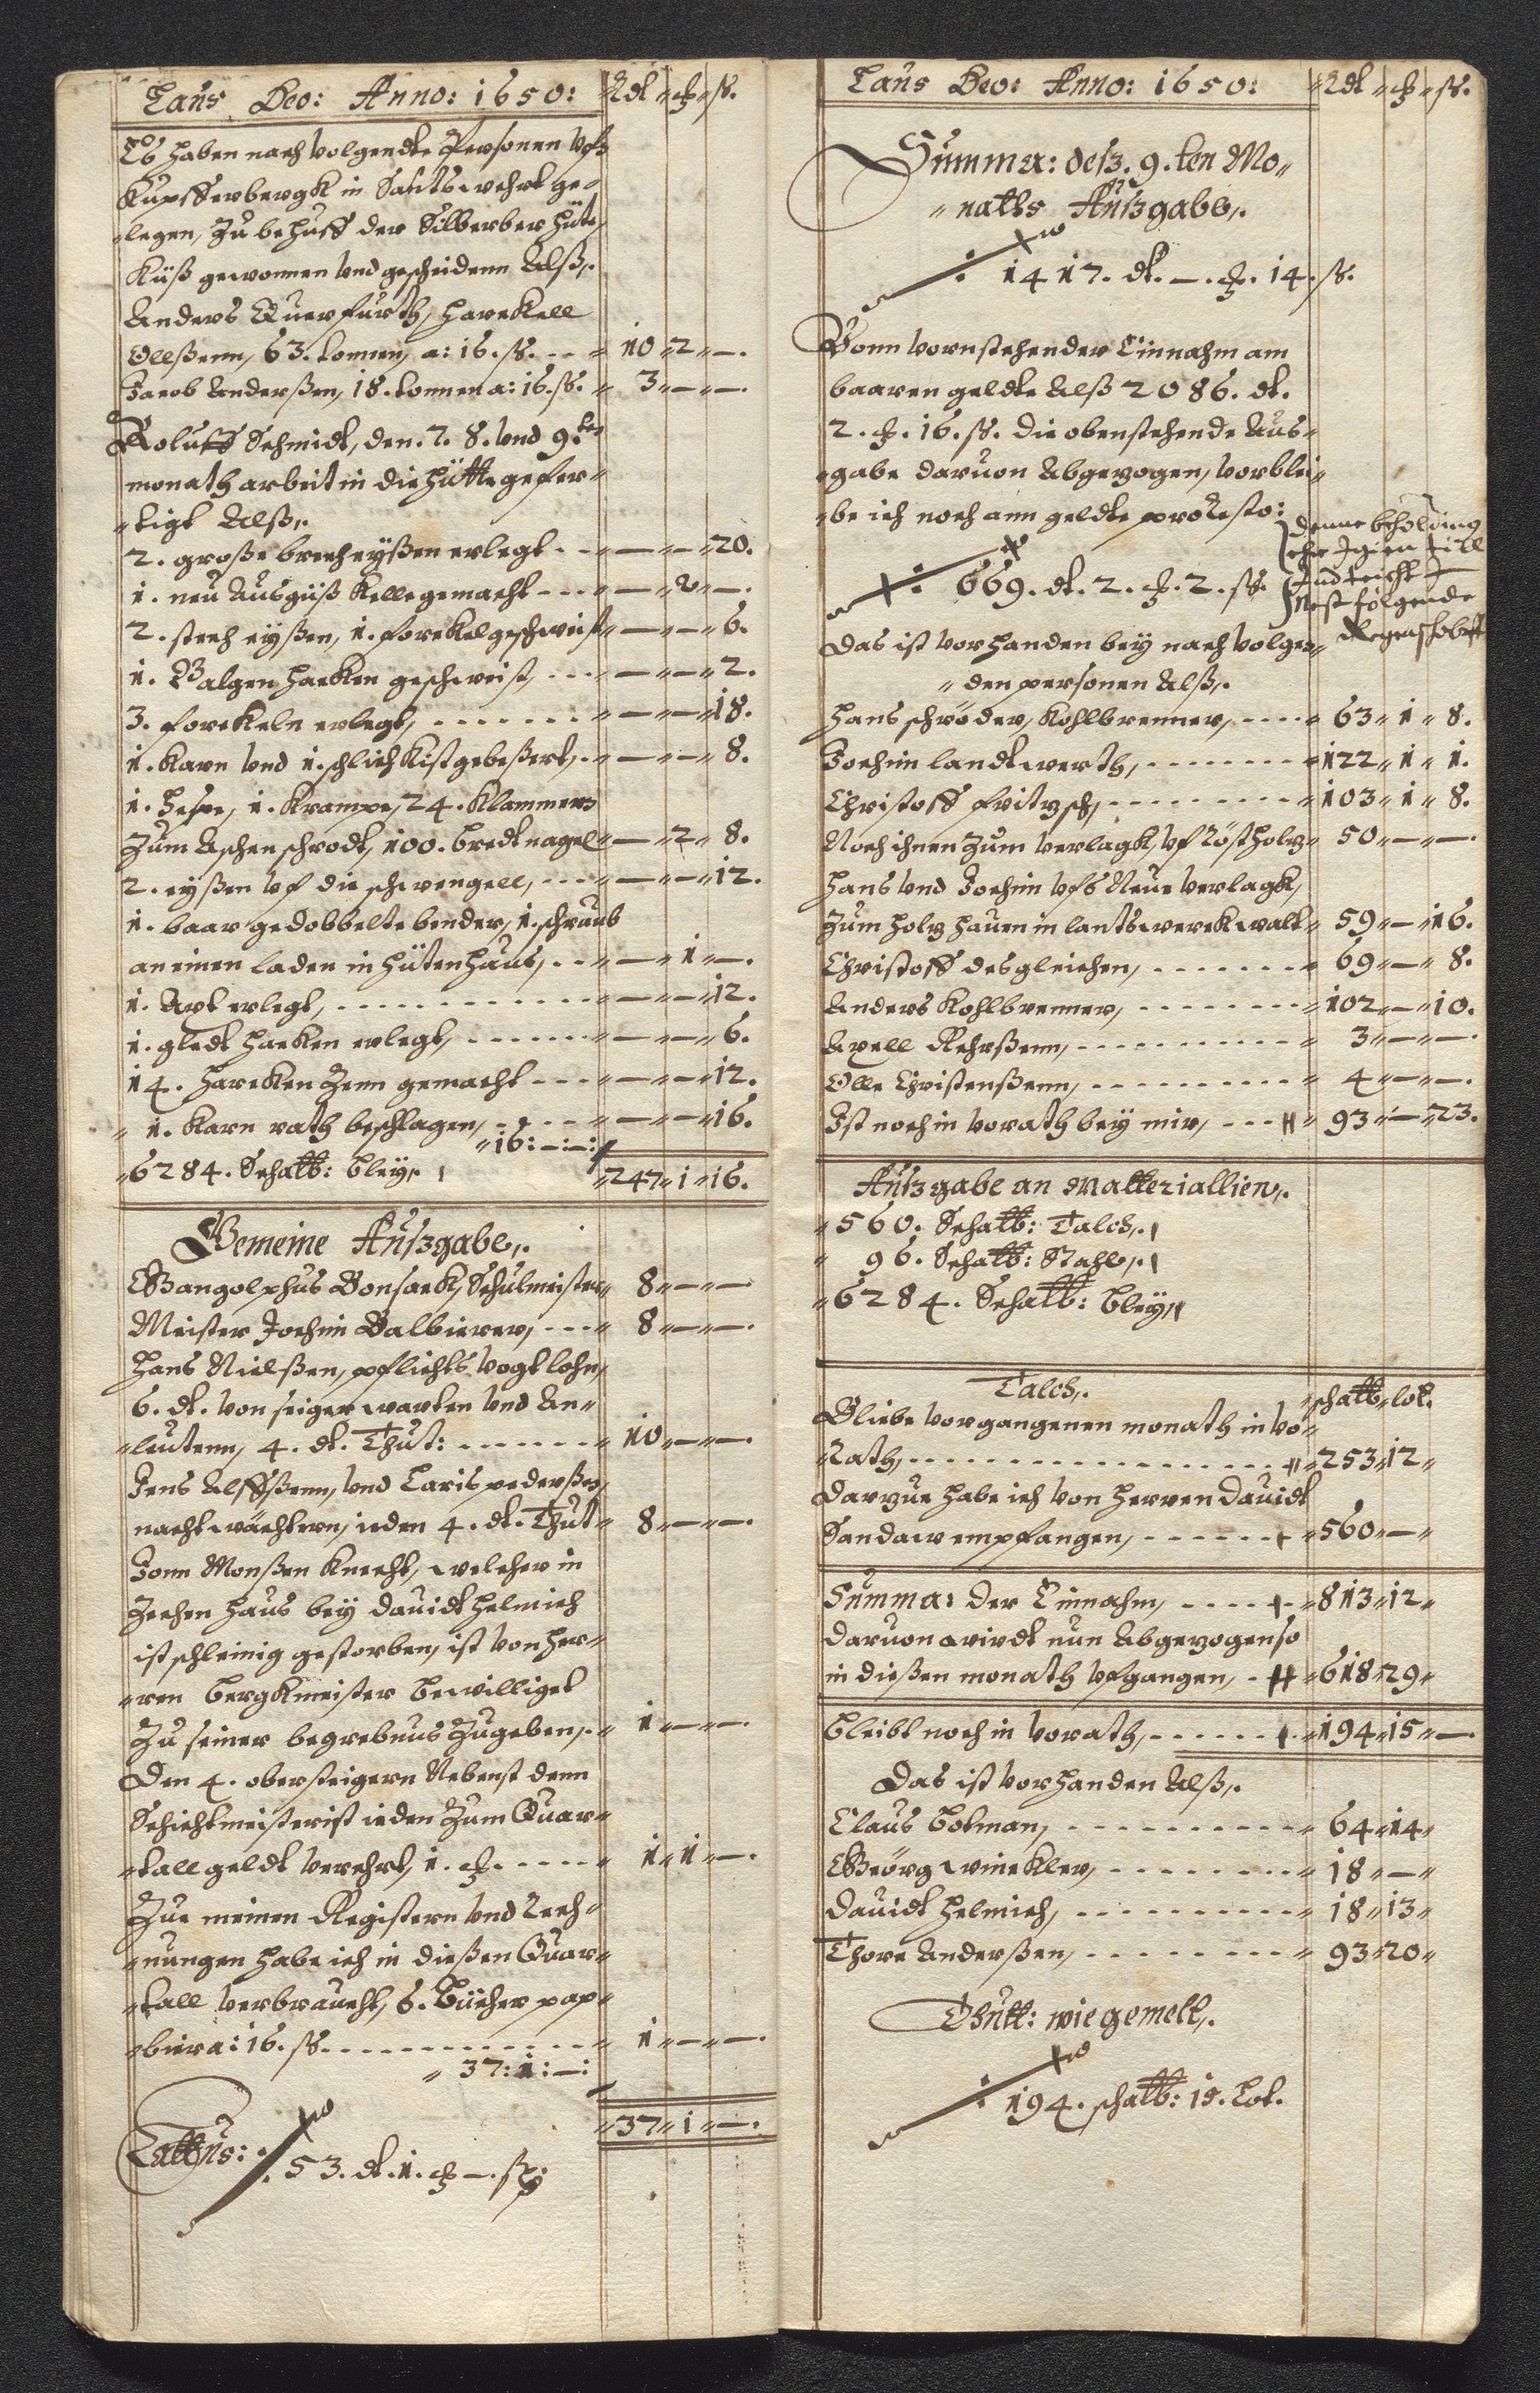 Laus Deo: Anno: 1650: Rdt " ₰ " ß.
Es haben nach volgendte Personen vfs
Kupfferbergk in Saltswehrk ge-
"legen, Zu behuff der Silberber Hüte,
Küß gewonnen vnd gescheidenn Alß,.
Anders Querfurth, Harekell
Ollßenn, 63. tonnen, a: 16. ß. - - " 10 " 2 " —.
Jacob Anderßen, 18. tonnen a: 16. ß. " 3 " — " —.
Roluff Schmidt, den. 7. 8. vnd 9.ten
monath arbeit in die Hütte gefer"
"tigt Alß,.
2. große brecheyßen erlegt - - " — " — " 20.
1. neu Ausguß Kelle gemacht - - - " — " 2 " —.
2. stech eyßen, 1. forckel geschweist " — " — " 6.
1. Balgen Hacken geschweist, - - - " — " — " 2.
3. forckeln erlegt, - - - - - - - " — " — " 18.
1. Karn vnd 1. schlich Kist gebeßert, - " — " — " 8.
1. Hespe, 1. Krampe, 24. Klammern
Zum Aschen schrodt, 100. bredt nagel " — " 2 " 8.
2. eyßen vf die schwengell, - - - " — " — " 12.
1. baar gedobbelte bender, 1. schraub
an einen laden in Hütenhaus, - - " — " 1 " —.
1. Axt erlegt, - - - - - - - - - - " — " — " 12.
1. gledt Hacken erlegt, - - - - - - " — " — " 6.
14. Harcken Zenn gemacht - - - " — " — " 12.
" 1. Karn rath beschlagen, - - - - " — " — " 16.
" 16: —: —:
" 6284. Scha℔: bley,. " 247 " 1 " 16.
Gemeine Außgabe,.
Gangolphus Bonsack, Schulmeister " 8 " — " —
Meister Jochim Balbierer, - - - " 8 " — " —.
Hans Nielßen, pflichts Vogt lohn,
6. dt. von seiger warten vnd An"
"leutenn, 4. dt. Thut: - - - - - - - " 10 " — " —.
Jens Alffßenn, vnd Laris pederßen,
nacht wächtern, ieden 4. dt. Thut " 8 " — " —.
Jonn Monßen Knecht, welcher in
Zechen Haus bey Dauidt Helmich
ist schleinig gestorben, ist von Her"
"ren Bergkmeister bewilliget
Zu seiner begrebnus Zugeben, - " 1 " — " —.
Den 4. obersteigern Nebenst denn
Schichtmeister ist ieden Zum Quar"
"tall geldt verehrt, 1. ₰. - - - - - " 1 " 1 " —.
Zue meinen Registern vnd Rech"
"nungen habe ich in dießen Quar"
"tall verbraucht, 6. Bücher pap"
"bier a: 16. ß. - - - - - - - - - - " 1 " — " —.
" 37: 1: —:
" 37 " 1 " —.
Lattus: 53. dt. 1. ₰ —. ß:
Laus Deo: Anno: 1650: " Rdt " ₰ " ß.
Summa: deß. 9. ten Mo"
"naths Außgabe,.
1417. dt. —. ₰. 14. ß.
Vonn vornstehender Einnahm am
baaren geldte Alß 2086. dt.
2. ₰. 16. ß. die obenstehende Aus"
"gabe daruon Abgezogen, vorblei"
"be ich noch ann geldte pro Resto:
669. dt. 2. ₰. 2. ß.
denne beholding
ehr Igien till
Ind teicht J
Nest følgende
Regenschob
Das ist vorhanden bey nach volgen"
"den personen Alß,.
Hans schröder, Kohlbrenner, - - - - " 63 " 1 " 8.
Jochim landtwerth, - - - - - - - - " 122 " 1 " 1.
Christoff Fritzsch, - - - - - - - - - " 103 " 1 " 8.
Noch ihnen Zum verlagk, vf Rostholz " 50 " — " —.
Hans vnd Jochim vfs Neue verlagk,
Zum holz hauen in lantswerck walt " 59 " — " 16.
Christoff desgleichen, - - - - - - - " 69 " — " 8.
Anders Kohlbrenner, - - - - - - - - " 102 " — " 10.
Axell Rehrßenn, - - - - - - - - - - - " 3 " — " —.
Olle Christenßenn, - - - - - - - - - - " 4 " — " —.
Ist noch in vorath bey mir, - - - " 93 " — " 23.
Außgabe an Matteriallien,.
" 560. Scha℔: Talch,.
" 96. Scha℔: Stahl,.
" 6284. Scha℔: bley,
Talch,. " scha℔ " lot.
Bliebe vorgangenen monath in vo"
"Rath, - - - - - - - - - - - - - - - " 253 " 12 "
Darzue habe ich von Herren Dauidt
Sandaw empfangen, - - - - - - " 560 " — "
Summa: der Einnahm, - - - - - " 813 " 12 "
daruon wirdt nun Abgezogen so
in dießen monath vfgangen, - " 618 " 29 "
bleibt noch in vorath, - - - - - - " 194 " 15 " —.
Das ist vorhanden Alß,.
Claus Botman, - - - - - - - - - - " 64 " 14 "
Geörg winckler, - - - - - - - - - " 18 " — "
Dauidt Helmich, - - - - - - - - - - " 18 " 13 "
Thore Anderßen, - - - - - - - - " 93 " 20 "
Thutt: wie gemelt,.
194. scha℔: 15. Lot.